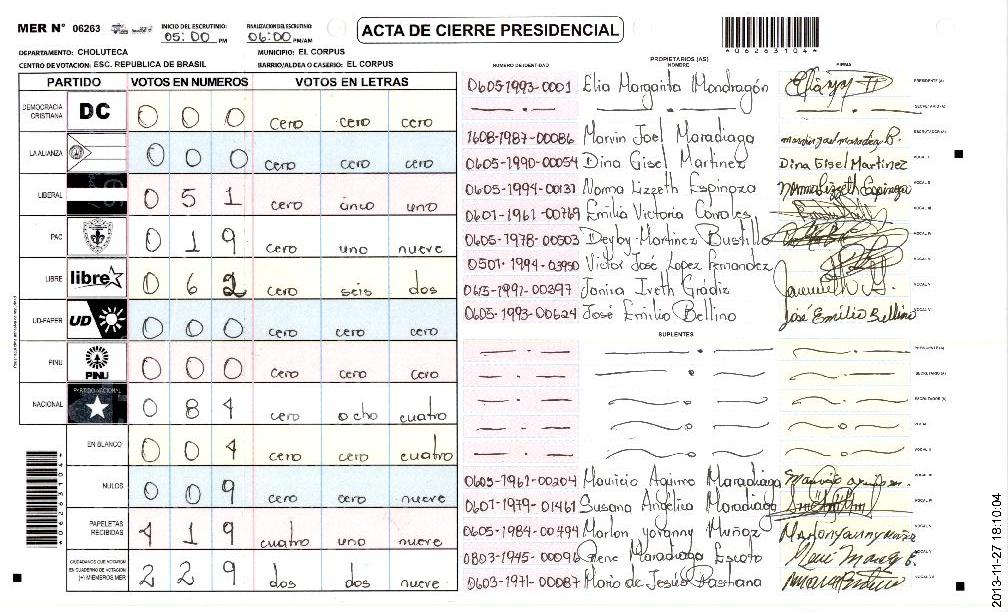 MER N° 06263 INICIO DEL ESCRUTINIO: 05:00 PM FINALIZACION DEL ESCRUTINIO: 06:00 PM/AM ACTA DE CIERRE PRESIDENCIAL
DEPARTAMENTO: CHOLUTECA MUNICIPIO: EL CORPUS
CENTRO DE VOTACION: ESC. REPUBLICA DE BRASIL BARRIO/ALDEA O CASERIO: EL CORPUS
PARTIDO VOTOS EN NUMEROS VOTOS EN LETRAS
DEMOCRACIA CRISTIANA DC 0 0 0 cero cero cero
LA ALIANZA 0 0 0 cero cero cero
LIBERAL 0 5 1 cero cinco uno
PAC 0 1 9 cero uno nueve
LIBRE libre 0 6 2 cero seis dos
UD-FAPER UD 0 0 0 cero cero cero
PINU PINU 0 0 0 cero cero cero
NACIONAL PARTIDO NACIONAL 0 8 4 cero ocho cuatro
EN BLANCO 0 0 4 cero cero cuatro
NULOS 0 0 9 cero cero nueve
PAPELETAS RECIBIDAS 4 1 9 cuatro uno nueve
CIUDADANOS QUE VOTARON EN CUADERNO DE VOTACION (+) MIEMBROS MER 2 2 9 dos dos nueve
PROPIETARIOS (AS)
NUMERO DE IDENTIDAD NOMBRE FIRMA
0605-1993-0001 Elia Margarita Mondragón PRESIDENTE (A)
SECRETARIO (A)
1608-1987-00086 Marvin Joel Maradiaga ESCRUTADOR (A)
0605-1990-00054 Dina Gisel Martinez Dina Gisel Martinez VOCAL I
0605-1994-00131 Norma Lizzeth Espinoza Norma Lizzeth Espinoza VOCAL II
0601-1961-00769 Emilia Victoria Canales VOCAL III
0605-1978-00503 Deyby Martinez Bustillo
0501-1994-03950 Victor José Lopez Fernandez
0615-1991-00397 Janina Iveth Grádiz
0605-1993-00624 José Emilio Bellino José Emilio Bellino
SUPLENTES
PRESIDENTE (A)
SECRETARIO (A)
ESCRUTADOR (A)
VOCAL I
VOCAL II
0605-1961-00204 Mauricio Aguirre Maradiaga
0601-1979-01461 Susana Angélica Maradiaga
0605-1984-00494 Marlon Yovanny Muñoz
0803-1945-00096 Rene Maradiaga Escoto
0603-1971-00087 Mario de Jesus Pastrana
4062631044
2013-11-27 18:10:04